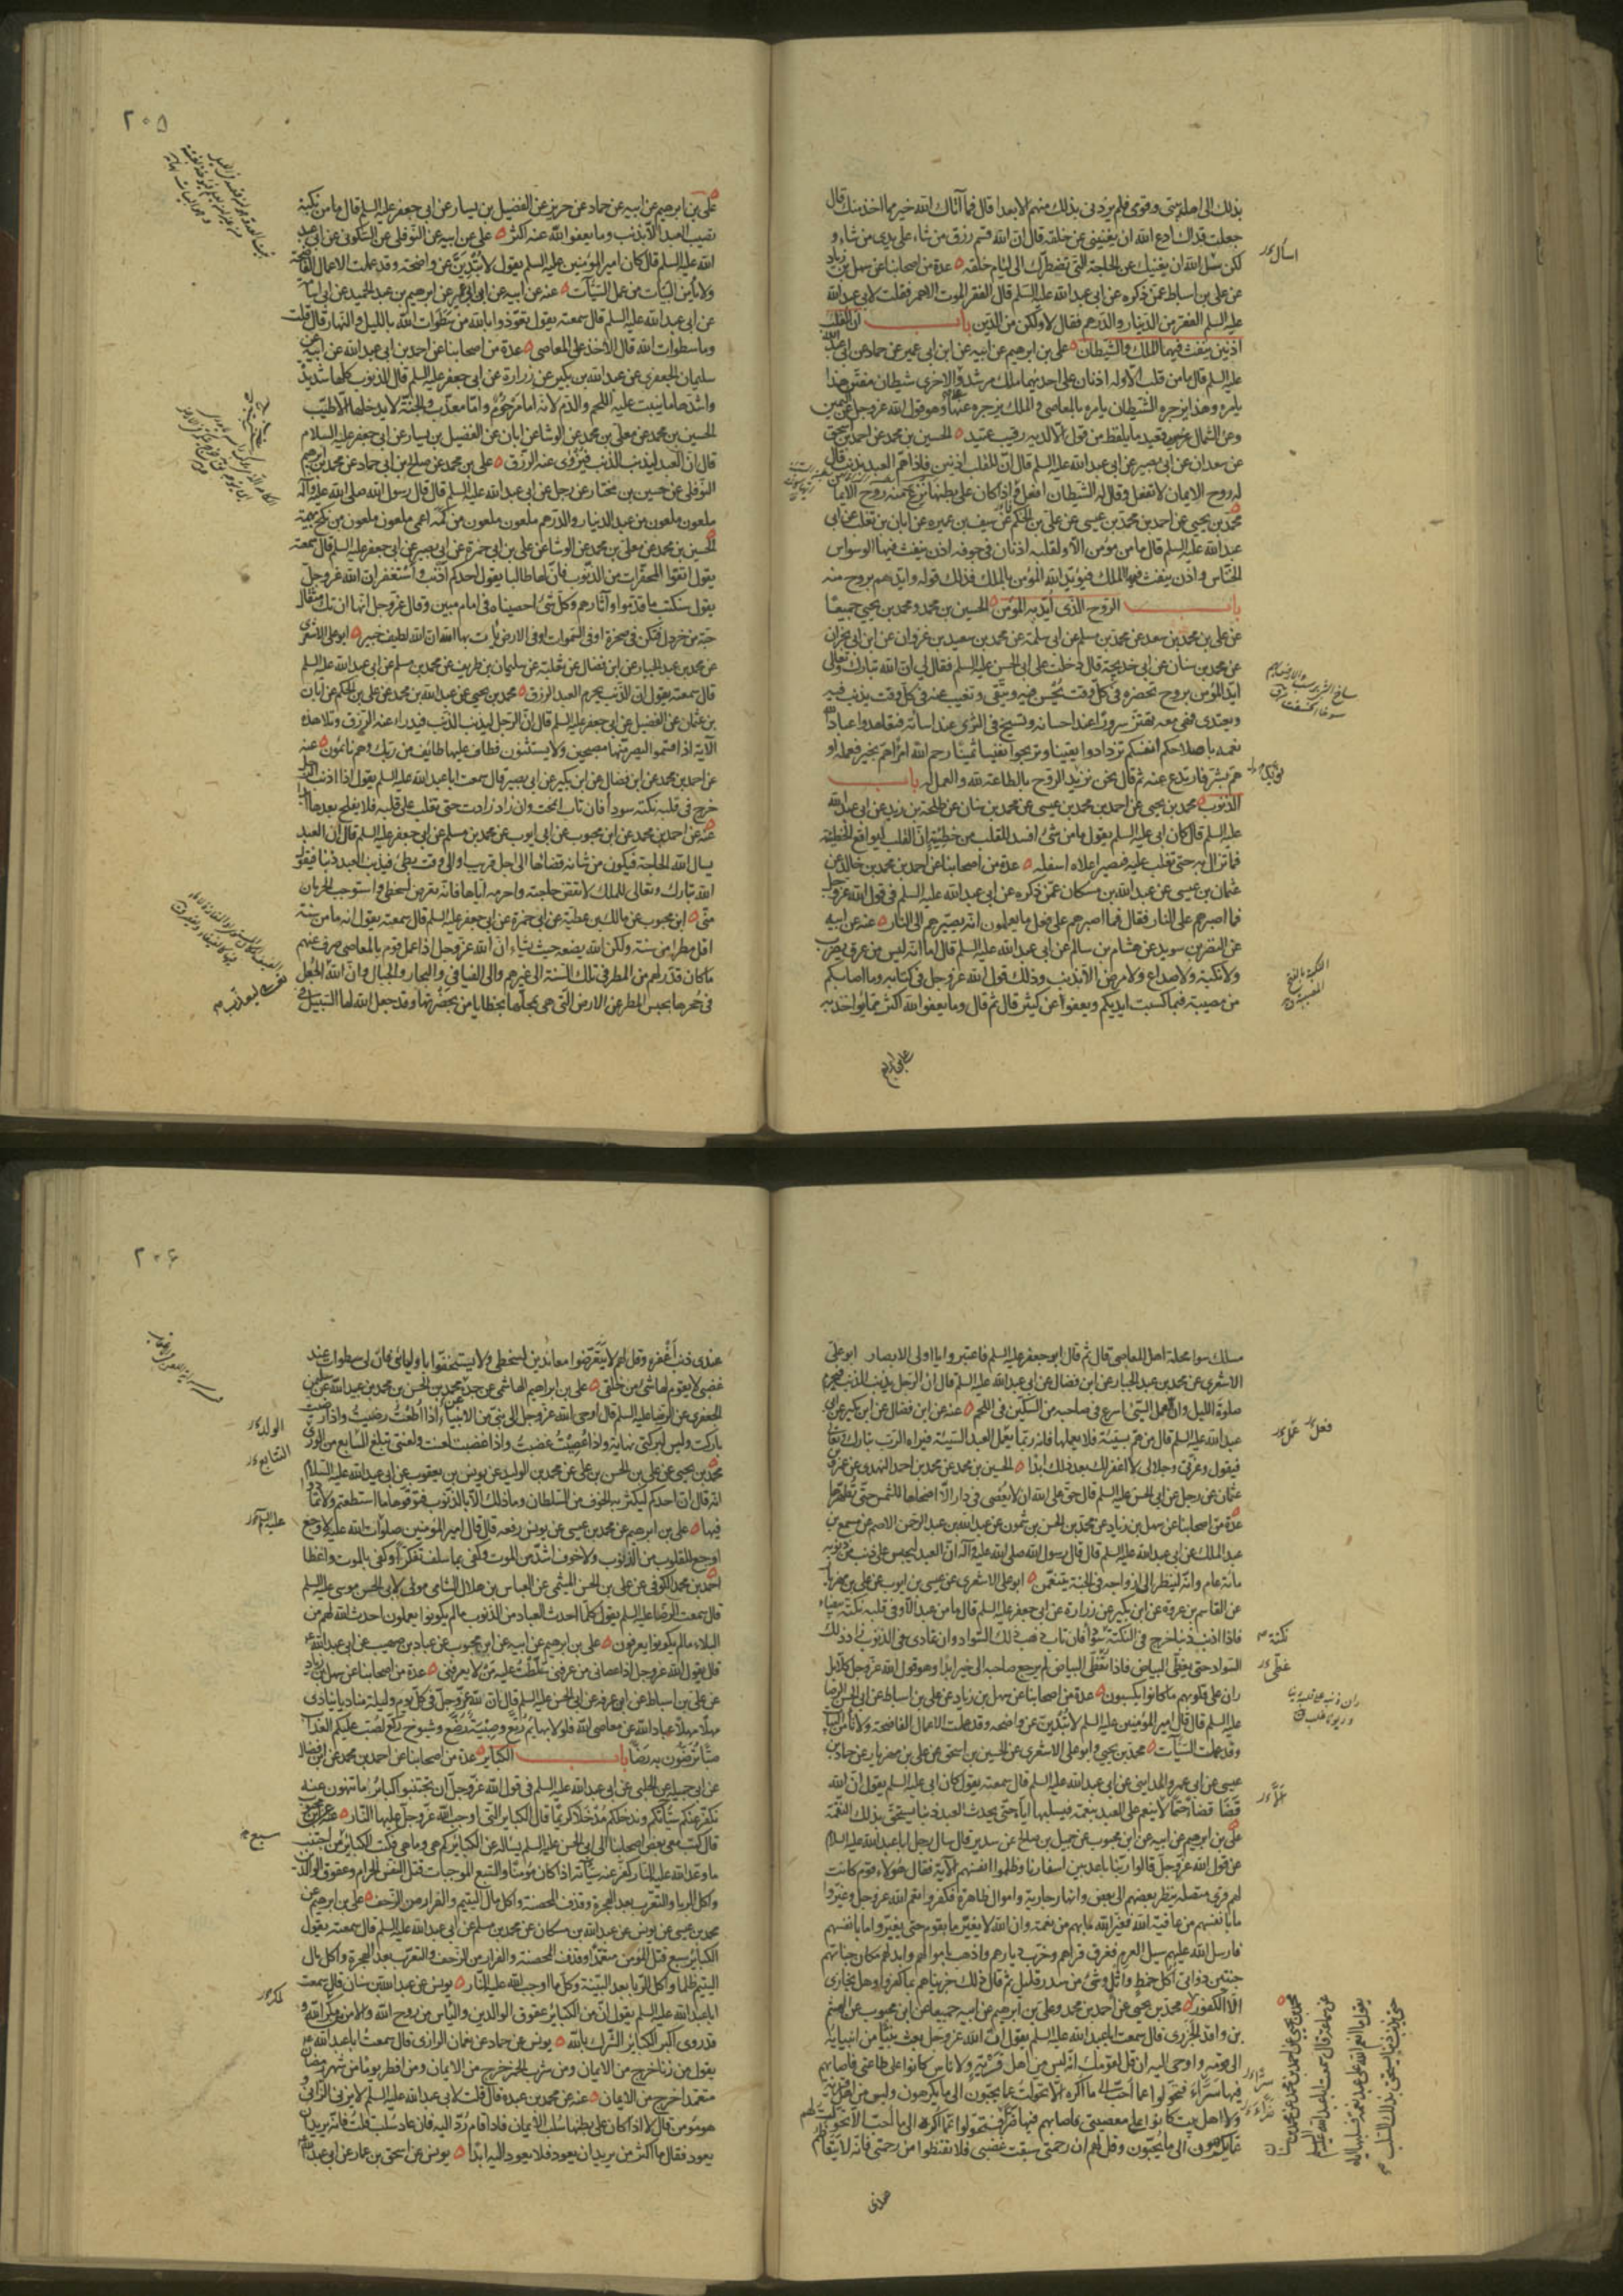 بذلك الى اهله حتى وقوى فلم يزدنى بذلك منهم الا بعدا قال فما آتاك الله خير مما اخذ منك قال
جعلت فداك ادع الله ان يغنينى عن خلقه قال ان الله قسم رزق من شاء على يدى من شاء و
لكن سل الله ان يغنيك عن الحاجة التى تضطرك الى لئام خلقه عدة من اصحابنا عن سهل بن زياد
عن على بن اسباط عمن ذكره عن ابى عبد الله عليه السلم قال الفقر الموت الاحمر فقلت لابى عبد الله
عليه السلم الفقر من الدينار والدرهم فقال لا ولكن من الدين باب ان للقلب
اذنين ينفث فيهما الملك والشيطان على بن ابرهيم عن ابيه عن ابن ابى عمير عن حماد عن ابى عبد الله
عليه السلم قال ما من قلب الا وله اذنان على احديهما ملك مرشد وعلى الاخرى شيطان مفتن هذا
يامره وهذا يزجره الشيطان يامره بالمعاصى والملك يزجره عنها وهو قول الله عز وجل عن اليمين
وعن الشمال قعيد ما يلفظ من قول الا لديه رقيب عتيد الحسين بن محمد عن احمد بن اسحق
عن سعدان عن ابى بصير عن ابى عبد الله عليه السلم قال ان للقلب اذنين فاذا هم العبد بذنب قال
له روح الايمان لا تفعل وقال له الشيطان افعل واذا كان على بطنها نزع منه روح الايمان
محمد بن يحيى عن احمد بن محمد بن عيسى عن على بن الحكم عن سيف بن عميره عن ابان بن تغلب عن ابى
عبد الله عليه السلم قال ما من مؤمن الا ولقلبه اذنان فى جوفه اذن ينفث فيها الوسواس
الخناس واذن ينفث فيها الملك فيؤيد الله المؤمن بالملك فذلك قوله وايدهم بروح منه
باب الروح الذى ايد به المؤمن الحسين بن محمد ومحمد بن يحيى جميعا
عن على بن محمد بن سعد عن محمد بن مسلم عن ابى سلمة عن محمد بن سعيد بن غزوان عن ابن ابى نجران
عن محمد بن سنان عن ابى خديجة قال دخلت على ابى الحسن عليه السلم فقال لى ان الله تبارك وتعالى
ايد المؤمن بروح تحضره فى كل وقت يحسن فيه ويتقى وتغيب عنه فى كل وقت يذنب فيه
ويعتدى فهى معه تهتز سرورا عند احسانه وتسيخ فى الثرى عند اساءته فتعاهدوا عباد الله
نعمه باصلاحكم انفسكم تزدادوا يقينا وتربحوا نفيسا ثمينا رحم الله امرأ هم بخير فعمله او
هم بشر فارتدع عنه ثم قال نحن نزيد الروح بالطاعة لله والعمل له باب
الذنوب محمد بن يحيى عن احمد بن محمد بن عيسى عن محمد بن سنان عن طلحة بن زيد عن ابى عبد الله
عليه السلم قال كان ابى عليه السلم يقول ما من شئ افسد للقلب من خطيئة ان القلب ليواقع الخطيئة
فما تزال به حتى تغلب عليه فيصير اعلاه اسفله عدة من اصحابنا عن احمد بن محمد بن خالد عن
عثمان بن عيسى عن عبد الله بن مسكان عمن ذكره عن ابى عبد الله عليه السلم فى قول الله عز وجل
فما اصبرهم على النار فقال فما اصبرهم على فعل ما يعلمون انه يصيرهم الى النار عنه عن ابيه
عن النضر بن سويد عن هشام بن سالم عن ابى عبد الله عليه السلم قال اما انه ليس من عرق يضرب
ولا نكبة ولا صداع ولا مرض الا بذنب وذلك قول الله عز وجل فى كتابه وما اصابكم
من مصيبة فبما كسبت ايديكم ويعفوا عن كثير قال ثم قال وما يعفوا الله اكثر مما يؤاخذ به
على بن ابرهيم
اسأل
٢٠٥
على بن ابرهيم عن ابيه عن حماد عن حريز عن الفضيل بن يسار عن ابى جعفر عليه السلم قال ما من نكبة
تصيب العبد الا بذنب وما يعفوا الله عنه اكثر على عن ابيه عن النوفلى عن السكونى عن ابى عبد
الله عليه السلم قال كان امير المؤمنين عليه السلم يقول لا تبدين عن واضحة وقد عملت الاعمال الفاضحة
ولا يأمن البيات من عمل السيئات عنه عن ابيه عن ابن ابى عمير عن ابرهيم بن عبد الحميد عن ابى اسامة
عن ابى عبد الله عليه السلم قال سمعته يقول تعوذوا بالله من سطوات الله بالليل والنهار قال قلت
وما سطوات الله قال الاخذ على المعاصى عدة من اصحابنا عن احمد بن ابى عبد الله عن ابيه عن
سليمان الجعفرى عن عبد الله بن بكير عن زرارة عن ابى جعفر عليه السلم قال الذنوب كلها شديدة
واشدها ما ينبت عليه اللحم والدم لانه اما مرحوم واما معذب والجنة لا يدخلها الا طيب
الحسين بن محمد عن معلى بن محمد عن الوشا عن ابان عن الفضيل بن يسار عن ابى جعفر عليه السلام
قال ان العبد ليذنب الذنب فيزوى عنه الرزق على بن محمد عن صالح بن ابى حماد عن محمد بن ابرهيم
النوفلى عن حسين بن مختار عن رجل عن ابى عبد الله عليه السلم قال قال رسول الله صلى الله عليه وآله
ملعون ملعون من عبد الدينار والدرهم ملعون ملعون من كمه اعمى ملعون ملعون من نكح بهيمة
الحسين بن محمد عن معلى بن محمد عن الوشا عن على بن ابى حمزة عن ابى بصير عن ابى جعفر عليه السلم قال سمعته
يقول اتقوا المحقرات من الذنوب فان لها طالبا يقول احدكم اذنب واستغفر ان الله عز وجل
يقول سنكتب ما قدموا وآثارهم وكل شئ احصيناه فى امام مبين وقال عز وجل انها ان تك مثقال
حبة من خردل فتكن فى صخرة او فى السموات او فى الارض يأت بها الله ان الله لطيف خبير ابو على الاشعرى
عن محمد بن عبد الجبار عن ابن فضال عن ثعلبة عن سليمان بن طريف عن محمد بن مسلم عن ابى عبد الله عليه السلم
قال سمعته يقول ان الذنب يحرم العبد الرزق محمد بن يحيى عن عبد الله بن محمد عن على بن الحكم عن ابان
بن عثمان عن الفضيل عن ابى جعفر عليه السلم قال ان الرجل ليذنب الذنب فيدرأ عنه الرزق وتلا هذه
الآية اذ اقسموا ليصرمنها مصبحين ولا يستثنون فطاف عليها طائف من ربك وهم نائمون عنه
عن احمد بن محمد عن ابن فضال عن ابن بكير عن ابى بصير قال سمعت ابا عبد الله عليه السلم يقول اذا اذنب الرجل
خرج فى قلبه نكتة سوداء فان تاب انمحت وان زاد زادت حتى تغلب على قلبه فلا يفلح بعدها ابدا
عنه عن احمد بن محمد عن ابن محبوب عن ابى ايوب عن محمد بن مسلم عن ابى جعفر عليه السلم قال ان العبد
يسال الله الحاجة فيكون من شانه قضاؤها الى اجل قريب او الى وقت بطئ فيذنب العبد ذنبا فيقول
الله تبارك وتعالى للملك لا تقض حاجته واحرمه اياها فانه تعرض لسخطى واستوجب الحرمان
منى ابن محبوب عن مالك بن عطية عن ابى حمزة عن ابى جعفر عليه السلم قال سمعته يقول انه ما من سنة
اقل مطرا من سنة ولكن الله يضعه حيث يشاء ان الله عز وجل اذا عمل قوم بالمعاصى صرف عنهم
ما كان قدر لهم من المطر فى تلك السنة الى غيرهم والى الفيافى والبحار والجبال وان الله ليعذب الجعل
فى جحرها بحبس المطر عن الارض التى هى بمحلها بخطايا من بحضرتها وقد جعل الله لها السبيل فى
مسلك سوا محلة اهل المعاصى قال ثم قال ابو جعفر عليه السلم فاعتبروا يا اولى الابصار ابو على
الاشعرى عن محمد بن عبد الجبار عن ابن فضال عن ابى عبد الله عليه السلم قال ان الرجل يذنب الذنب فيحرم
صلوة الليل وان العمل السيئ اسرع فى صاحبه من السكين فى اللحم عنه عن ابن فضال عن ابن بكير عن ابى
عبد الله عليه السلم قال من هم بسيئة فلا يعملها فانه ربما يعمل العبد السيئة فيراه الرب تبارك وتعالى
فيقول وعزتى وجلالى لا اغفر لك بعد ذلك ابدا الحسين بن محمد عن محمد بن احمد النهدى عن عمرو بن
عثمان عن رجل عن ابى الحسن عليه السلم قال حق على الله ان لا يعصى فى دار الا اضحاها للشمس حتى تطهرها
عدة من اصحابنا عن سهل بن زياد عن محمد بن الحسن بن شمون عن عبد الله بن عبد الرحمن الاصم عن مسمع بن
عبد الملك عن ابى عبد الله عليه السلم قال قال رسول الله صلى الله عليه وآله ان العبد ليحبس على ذنب من ذنوبه
مائة عام وانه لينظر الى ازواجه فى الجنة يتنعمن ابو على الاشعرى عن عيسى بن ايوب عن على بن مهزيار
عن القاسم بن عروة عن ابن بكير عن زرارة عن ابى جعفر عليه السلم قال ما من عبد الا وفى قلبه نكتة بيضاء
فاذا اذنب ذنبا خرج فى النكتة سوداء فان تاب ذهب ذلك السواد وان تمادى فى الذنوب زاد ذلك
السواد حتى يغطى البياض فاذا تغطى البياض لم يرجع صاحبه الى خير ابدا وهو قول الله عز وجل كلا بل
ران على قلوبهم ما كانوا يكسبون عدة من اصحابنا عن سهل بن زياد عن على بن اسباط عن ابى الحسن الرضا
عليه السلم قال قال امير المؤمنين عليه السلم لا تبدين عن واضحة وقد عملت الاعمال الفاضحة ولا تأمن البيات
وقد عملت السيئات محمد بن يحيى وابو على الاشعرى عن الحسين بن اسحق عن على بن مهزيار عن حماد بن
عيسى عن ابى عمرو المدائنى عن ابى عبد الله عليه السلم قال سمعته يقول كان ابى عليه السلم يقول ان الله
قضا قضاء حتما لا ينعم على العبد بنعمة فيسلبها اياه حتى يحدث العبد ذنبا يستحق بذلك النقمة
على بن ابرهيم عن ابيه عن ابن محبوب عن جميل بن صالح عن سدير قال سال رجل ابا عبد الله عليه السلم
عن قول الله عز وجل قالوا ربنا باعد بين اسفارنا وظلموا انفسهم الآية فقال هؤلاء قوم كانت
لهم قرى متصلة ينظر بعضهم الى بعض وانهار جارية واموال ظاهرة فكفروا نعم الله عز وجل وغيروا
ما بانفسهم من عافية الله فغير الله ما بهم من نعمة وان الله لا يغير ما بقوم حتى يغيروا ما بانفسهم
فارسل الله عليهم سيل العرم فغرق قراهم وخرب ديارهم واذهب باموالهم وابدلهم مكان جناتهم
جنتين ذواتى اكل خمط واثل وشئ من سدر قليل ثم قال ذلك جزيناهم بما كفروا وهل يجازى
الا الكفور محمد بن يحيى عن احمد بن محمد وعلى بن ابرهيم عن ابيه جميعا عن ابن محبوب عن الهيثم
بن واقد الجزرى قال سمعت ابا عبد الله عليه السلم يقول ان الله عز وجل بعث نبيا من انبيائه
الى قومه واوحى اليه ان قل لقومك انه ليس من اهل قرية ولا ناس كانوا على طاعتى فاصابهم
فيها سراء فتحولوا عما احب الى ما اكره الا تحولت لهم عما يحبون الى ما يكرهون وليس من اهل قرية
ولا اهل بيت كانوا على معصيتى فاصابهم فيها ضراء فتحولوا عما اكره الى ما احب الا تحولت لهم
عما يكرهون الى ما يحبون وقل لهم ان رحمتى سبقت غضبى فلا تقنطوا من رحمتى فانه لا يتعاظم
عندى
نكتة
محمد بن يحيى عن احمد بن محمد عن محمد بن سنان
عن سماعة قال سمعت ابا عبد الله عليه السلم
يقول ما انعم الله على عبد نعمة فسلبها اياه
حتى يذنب ذنبا يستحق بذلك السلب
٢٠۶
عندى ذنب اغفره وقل لهم لا يتعرضوا معاندين لسخطى ولا يستخفوا باوليائى فان لى سطوات عند
غضبى لا يقوم لها شئ من خلقى على بن ابراهيم الهاشمى عن جده محمد بن الحسن بن محمد بن عبيد الله عن سليمان
الجعفرى عن الرضا عليه السلم قال اوحى الله عز وجل الى نبى من الانبياء اذا اطعت رضيت واذا رضيت
باركت وليس لبركتى نهاية واذا عصيت غضبت واذا غضبت لعنت ولعنتى تبلغ السابع من الورى
محمد بن يحيى عن على بن الحسن بن على عن محمد بن الوليد عن يونس بن يعقوب عن ابى عبد الله عليه السلام
انه قال ان احدكم ليكثر به الخوف من السلطان وما ذلك الا بالذنوب فتوقوها ما استطعتم ولا تمادوا
فيها على بن ابرهيم عن محمد بن عيسى عن يونس رفعه قال قال امير المؤمنين صلوات الله عليه لا وجع
اوجع للقلوب من الذنوب ولا خوف اشد من الموت وكفى بما سلف تفكرا وكفى بالموت واعظا
احمد بن محمد الكوفى عن على بن الحسن الميثمى عن العباس بن هلال الشامى مولى لابى الحسن موسى عليه السلم
قال سمعت الرضا عليه السلم يقول كلما احدث العباد من الذنوب ما لم يكونوا يعملون احدث الله لهم من
البلاء ما لم يكونوا يعرفون على بن ابرهيم عن ابيه عن ابن محبوب عن عباد بن صهيب عن ابى عبد الله
قال يقول الله عز وجل اذا عصانى من عرفنى سلطت عليه من لا يعرفنى عدة من اصحابنا عن سهل بن زياد
عن على بن اسباط عن ابن عرفة عن ابى الحسن عليه السلم قال ان لله عز وجل فى كل يوم وليلة مناديا ينادى
مهلا مهلا عباد الله عن معاصى الله فلولا بهائم رتع وصبية رضع وشيوخ ركع لصب عليكم العذاب
صبا ترضون به رضا باب الكبائر عدة من اصحابنا عن احمد بن محمد عن ابن فضال
عن ابى جميلة عن الحلبى عن ابى عبد الله عليه السلم فى قول الله عز وجل ان تجتنبوا كبائر ما تنهون عنه
نكفر عنكم سيئاتكم وندخلكم مدخلا كريما قال الكبائر التى اوجب الله عز وجل عليها النار عنه عن ابن محبوب
قال كتب معى بعض اصحابنا الى ابى الحسن عليه السلم يساله عن الكبائر كم هى وما هى فكتب الكبائر من اجتنب
ما وعد الله عليه النار كفر عنه سيئاته اذا كان مؤمنا والسبع الموجبات قتل النفس الحرام وعقوق الوالدين
واكل الربا والتعرب بعد الهجرة وقذف المحصنة واكل مال اليتيم والفرار من الزحف على بن ابرهيم عن
محمد بن عيسى عن يونس عن عبد الله بن مسكان عن محمد بن مسلم عن ابى عبد الله عليه السلم قال سمعته يقول
الكبائر سبع قتل المؤمن متعمدا وقذف المحصنة والفرار من الزحف والتعرب بعد الهجرة واكل مال
اليتيم ظلما واكل الربا بعد البينة وكل ما اوجب الله عليه النار يونس عن عبد الله بن سنان قال سمعت
ابا عبد الله عليه السلم يقول ان من الكبائر عقوق الوالدين والياس من روح الله والامن من مكر الله و
قد روى اكبر الكبائر الشرك بالله يونس عن حماد عن نعمان الرازى قال سمعت ابا عبد الله
يقول من زنا خرج من الايمان ومن شرب الخمر خرج من الايمان ومن افطر يوما من شهر رمضان
متعمدا خرج من الايمان عنه عن محمد بن عبده قال قلت لابى عبد الله عليه السلم لا يزنى الزانى و
هو مؤمن قال لا اذا كان على بطنها سلب الايمان فاذا قام رد اليه فان عاد سلب قلت فانه يريد ان
يعود فقال ما اكثر من يريد ان يعود فلا يعود اليه ابدا يونس عن اسحق بن عمار عن ابى عبد الله
الوليد
السابع
سبع